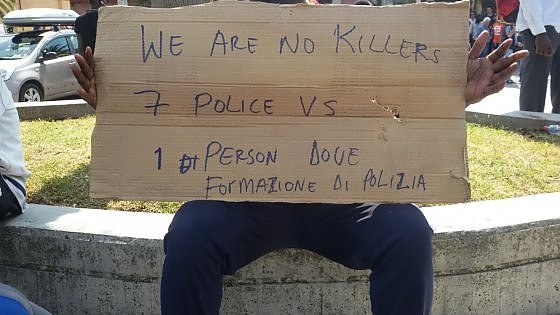 WE ARE NO KILLERS
7 POLICE VS
1 PERSON DOVE
FORMAZIONE DI POLIZIA